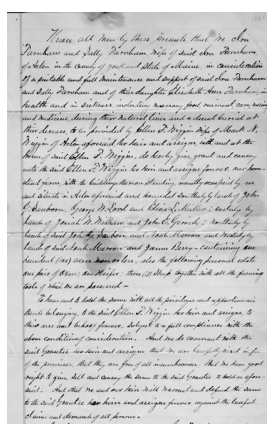 Know all men by these presents that we Ira
Farnham and Sally Farnham wife of said Ira Farnham
of Acton in the county of York and State of Maine in consideration
of a suitable and full maintenance and support of said Ira Farnham
and Sally Farnham and of their daughter Elizabeth Ann Farnham, in
health and in sickness including nursing, food, raiment, care, nursing
and medicine during their natural lives and a decent burial at
their decease, to be provided by Ellen F. Wiggin wife of Mark N.
Wiggin of Acton aforesaid her heirs and assigns, with and at the
home of said Ellen F. Wiggin, do hereby give, grant and convey
unto the said Ellen F. Wiggin her heirs and assigns forever, our
farm with the buildings thereon standing, occupied by us
and situate in Acton aforesaid and bounded southerly by land of John
Sanborn, George W. Lord and; easterly by
lands of and John C.; northerly by
lands of said John Sanborn and; westerly by
lands of said and James Berry, containing one
hundred (100) acres more or less; also the following personal estate
one pair of Oxen; one Heifer; three (3) Sheep together with all the farming
tools of which we are possessed —
To have and to hold the same with all the privileges and appurtenances
thereto belonging, to the said Ellen F. Wiggin her heirs and assigns, to
their use and behoof forever. Subject to a full compliance with the
above conditions of consideration. And we do covenant with the
said Grantee her heirs and assigns that we are lawfully seized in fee
of the premises, that they are free of all incumbrances, that we have good
right to give, sell and convey the same to the said Grantee to hold as afore-
said. And that we and our heirs will warrant and defend the same
to the said Grantee her heirs and assigns forever against the lawful
claims and demands of all persons.